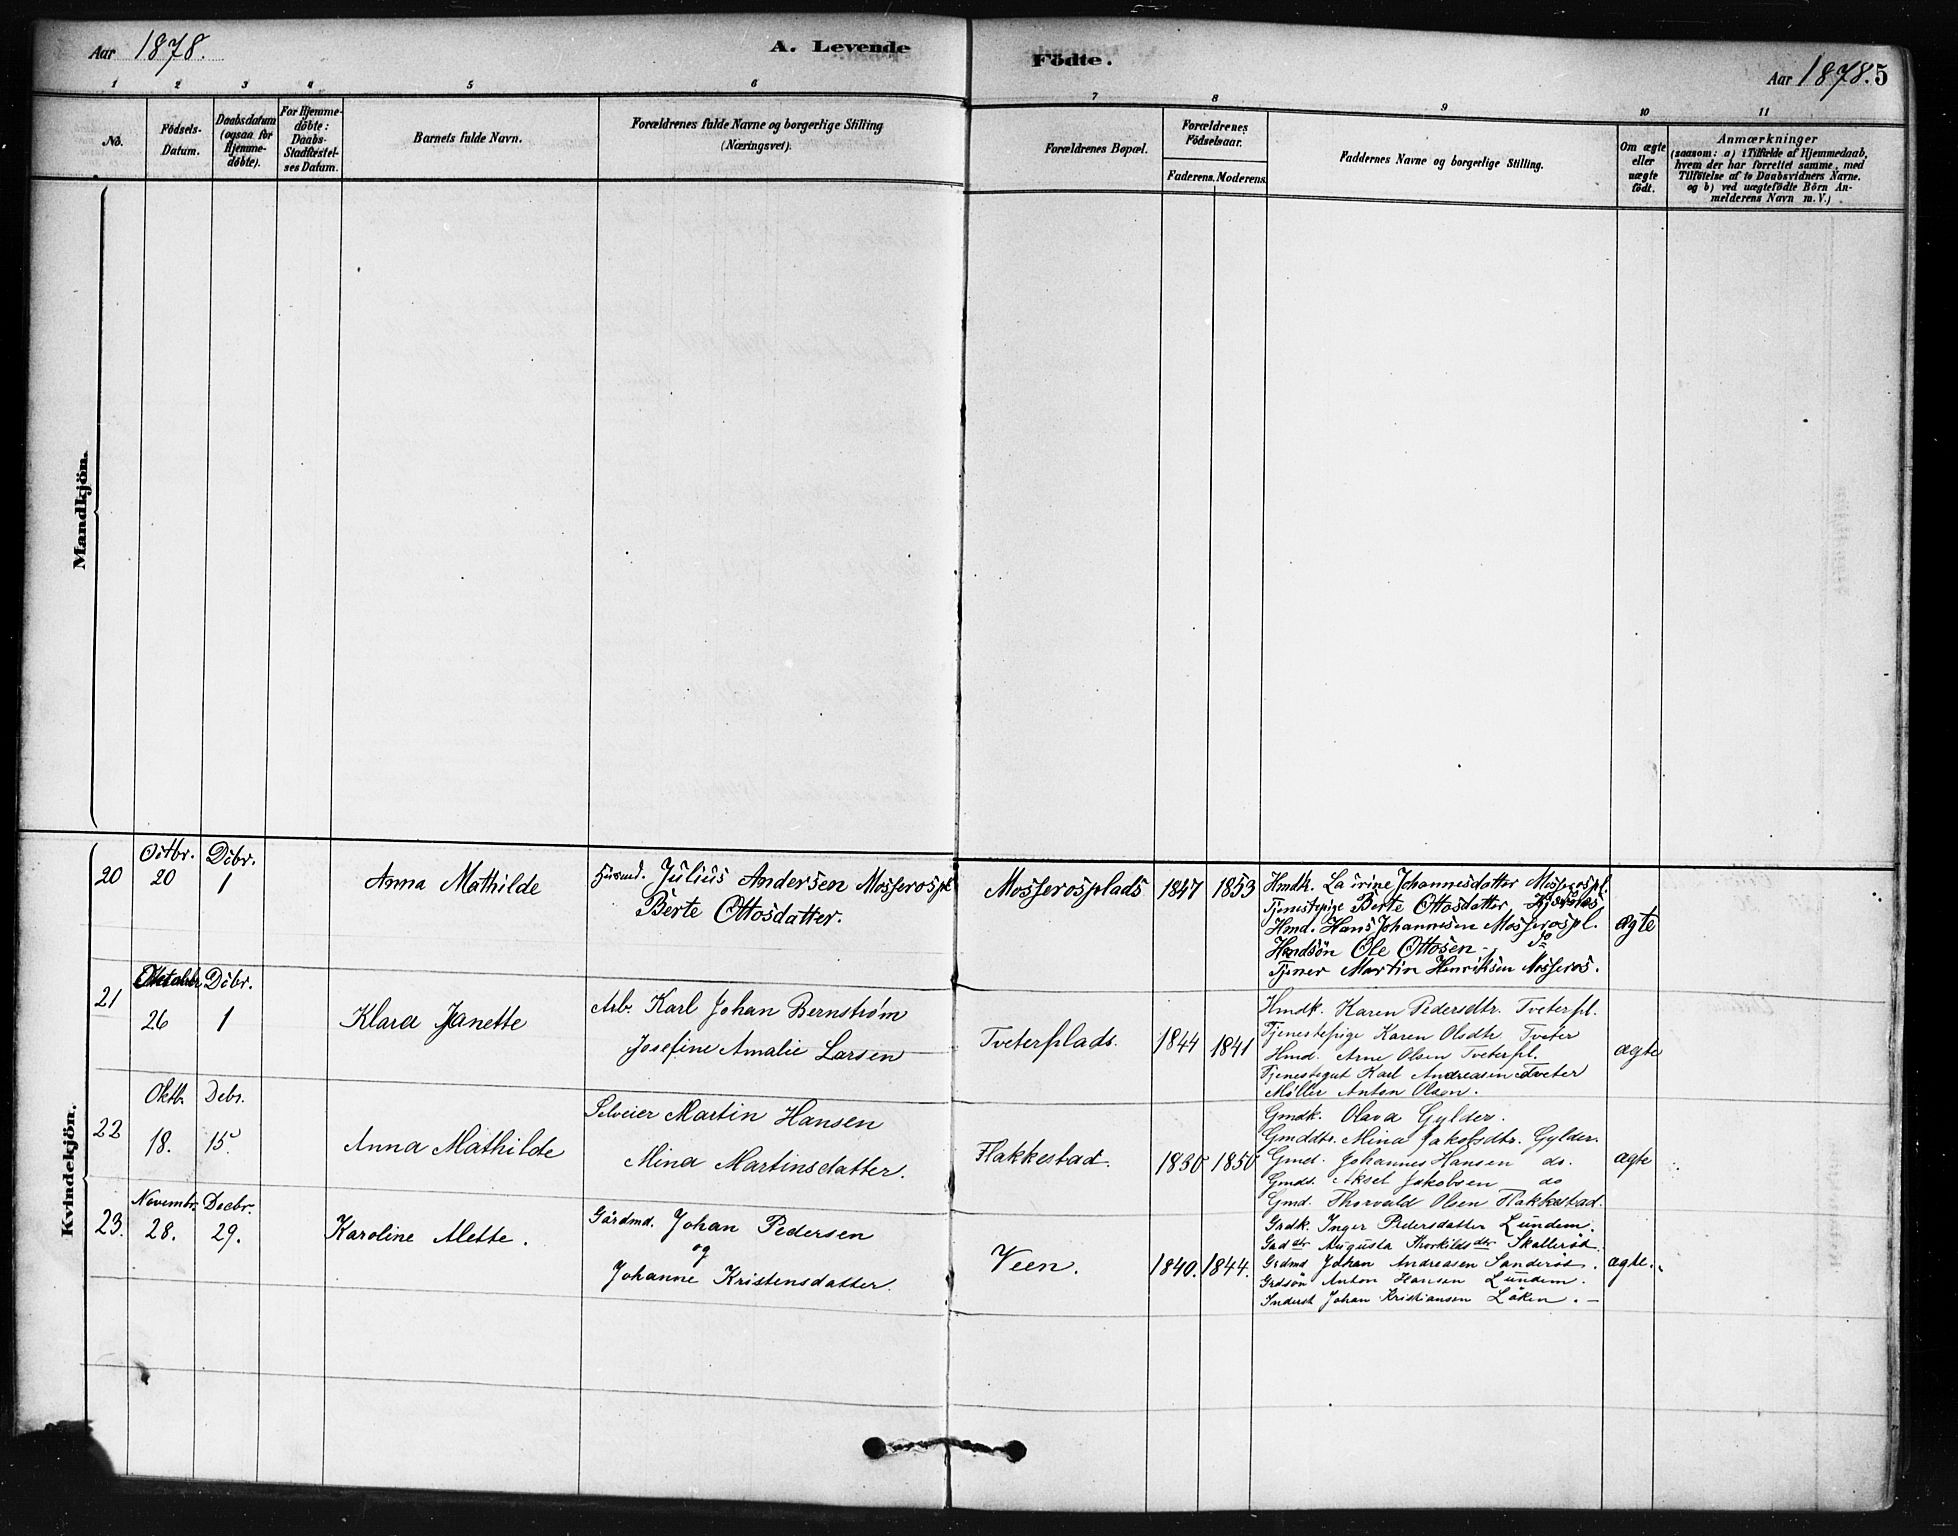 Aar 1878.
A. Levende
Födte.
Aar 1878. 5
1 2 3 4 5 6 7 8 9 10 11
No.
Födsels-
Datum.
Daabsdatum
(ogsaa for
Hjemme-
döbte).
For Hjemme-
döbte:
Daabs-
Stadfæstel-
ses Datum.
Barnets fulde Navn.
Forældrenes fulde Navne og borgerlige Stilling
(Næringsvei).
Forældrenes Bopæl.
Forældrenes
Födselsaar.
Faderens. Moderens.
Faddernes Navne og borgerlige Stilling.
Om ægte
eller
uægte
födt.
Anmærkninger
(saasom: a) i Tilfælde af Hjemmedaab,
hvem der har forrettet samme, med
Tilföielse af to Daabsvidners Navne.
og b) ved uægtefödte Börn An-
melderens Navn m. V.)
Mandkjön.
Kvindekjön.
20
Octbr.
20
Dcbr.
1
Anna Mathilde
Husmd. Julius Andersen Mosserospl
Berte Ottosdatter.
Mosserosplads
1847 1853
Hmdk. Johannesdatter Mosserospl.
Tjenestepige Berte Ottosdatter
Hmd. Hans Johannesen Mosserospl.
Hmdsön Ole Ottosen do
Tjener Martin Henriksen Mosseros.
ægte
21
26
Dcbr.
1
Klara Janette
Arb. Karl Johan Bernstrøm
Josefine Amalie Larsen
Tveterplads.
1844 1841
Hmdk. Karen Pedersdtr. Tveterpl.
Tjenestepige Karen Olsdtr Tveter
Hmd. Arne Olsen Tveterpl.
Tjenestegut Karl Andreasen Tveter
Møller Anton Olsen.
ægte
22
Oktb.
18.
Debr.
15.
Anna Mathilde
Selveier Martin Hansen
Mina Martinsdatter.
Flakkestad.
1830 1850
Gmdk. Olava Gylder.
Gmddtr. Mina Jakobsdtr. Gylder.
Gmd. Johannes Hansen do.
Gmds. Aksel Jakobsen do
Gmd. Thorvald Olsen Flakkestad.
ægte
23.
Novembr.
28.
Decbr.
29.
Karoline Alette.
Gårdmd. Johan Pedersen
og
Johanne Kristensdatter.
Veen.
1840. 1844.
Grdk. Inger Pedersdatter Lundem.
Augusta Thorkildsdtr Skallerød.
Grdmd Johan Andreasen Sanderød.
Grdsön Anton Hansen Lundem.
Inderst Johan Kristiansen Løken. –
ægte.